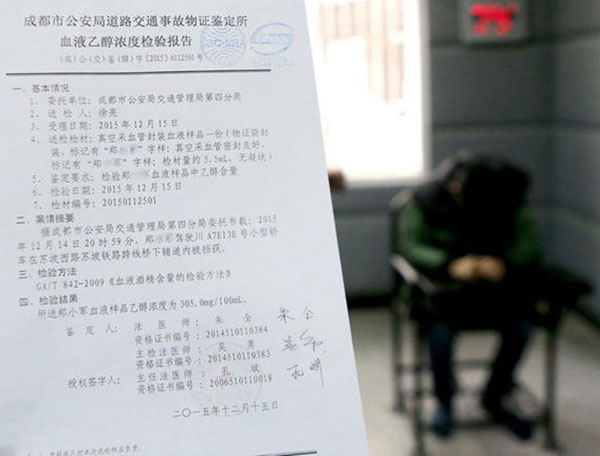 成都市公安局道路交通事故物证鉴定所
血液乙醇浓度检验报告
(成)公(交)鉴(醇)字[2015]0112501号
一、基本情况
1. 委托单位：成都市公安局交通管理局第四分局
2. 送 检 人：徐亮
3. 受理日期：2015 年 12 月 15 日
4. 送检检材：真空采血管封装血液样品一份(物证袋封
装、标记有“郑 军”字样；真空采血管密封良好、
标记有“郑 军”字样；检材量约 5.5mL，无凝块)
5. 鉴定要求：检验郑 血液样品中乙醇含量
6. 检验日期：2015 年 12 月 15 日
7. 检材编号：20150112501
二、案情摘要
据成都市公安局交通管理局第四分局委托书载：2015
年 12 月 14 日 20 时 59 分，郑 驾驶川 A7E13E 号小型轿
车在苏坡西路苏坡铁路跨线桥下辅道内被挡获。
三、检验方法
GA/T 842-2009《血液酒精含量的检验方法》
四、检验结果
所送郑小军血液样品乙醇浓度为 305.0mg/100mL。
鉴 定 人：法 医 师：朱 全
资格证书编号：2014510110384
主检法医师：吴 勇
资格证书编号：2014510110383
授权签字人：主任法医师：孔 斌
资格证书编号：2006510110018
二〇一五年十二月十五日